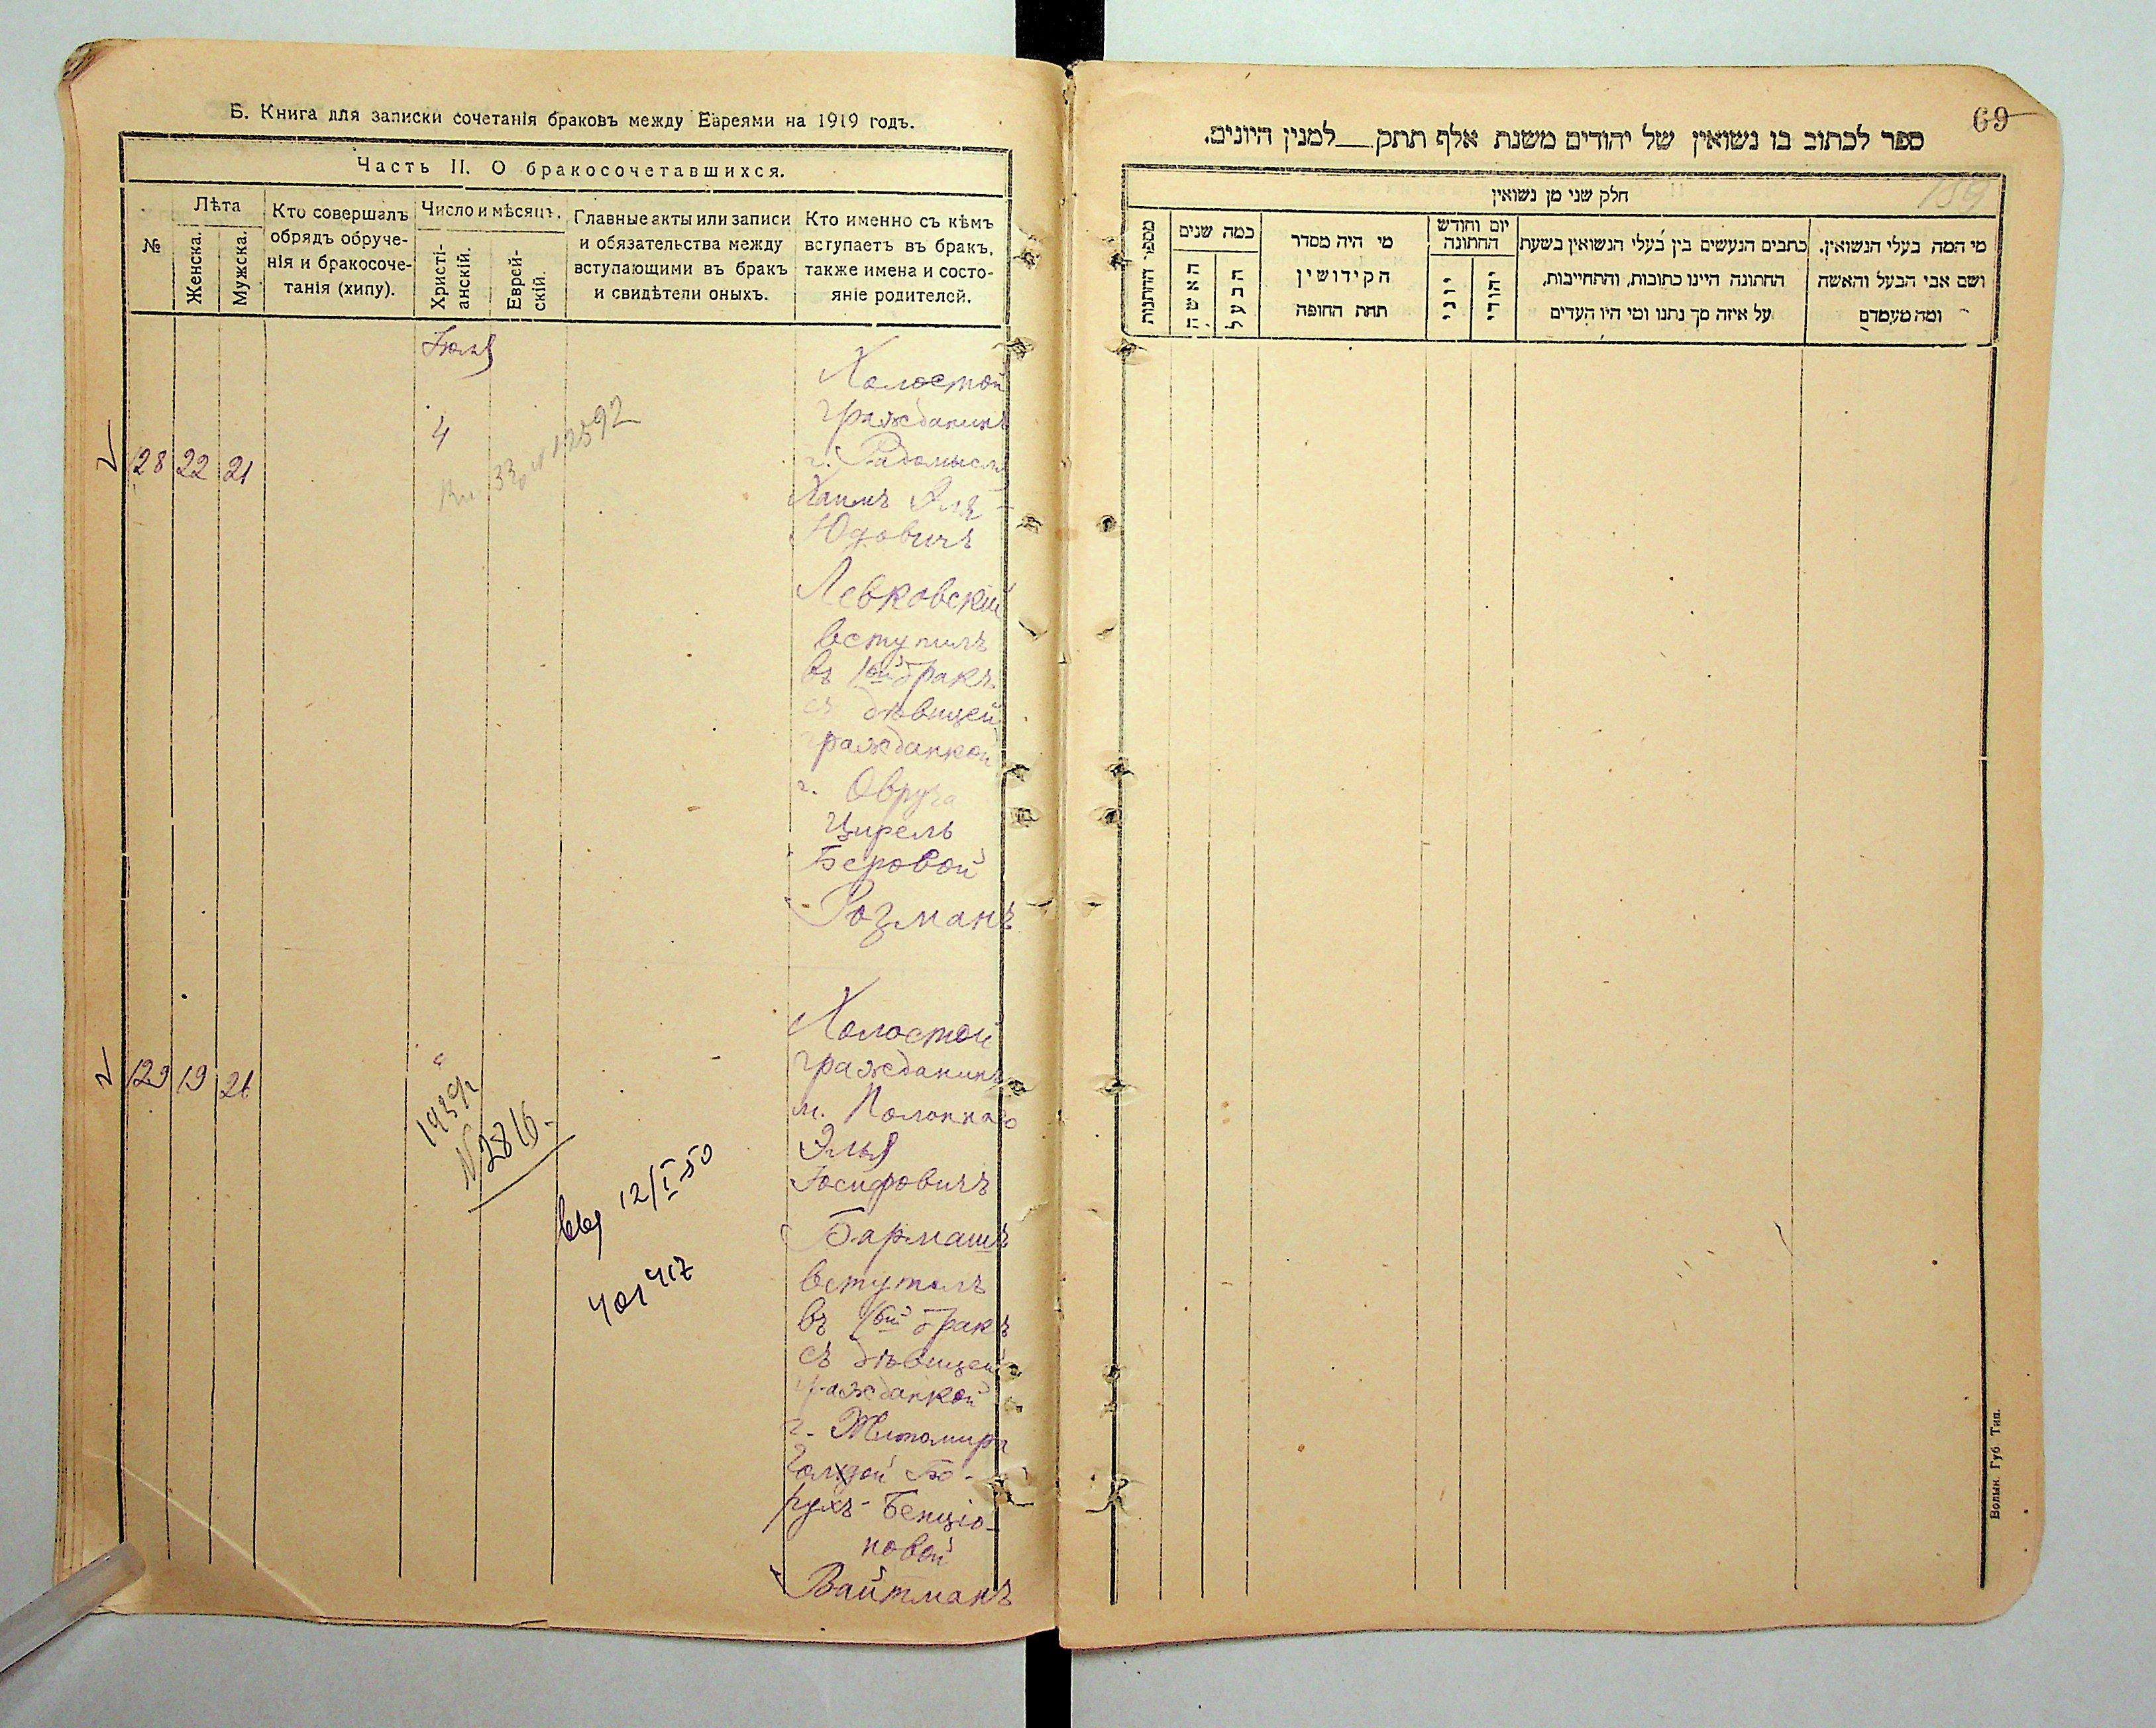 Б. Книга для записки сочетанія браковъ между Евреями на 1919 годъ.
Часть II. О бракосочетавшихся.
№
Лѣта
Женска.
Мужска.
Кто совершалъ
обрядъ обруче-
нія и бракосоче-
танія (хипу).
Число и мѣсяцъ.
Христі-
анскій.
Еврей-
скій.
Главные акты или записи
и обязательства между
вступающими въ бракъ
и свидѣтели оныхъ.
Кто именно съ кѣмъ
вступаетъ въ бракъ,
также имена и состо-
яніе родителей.
Іюля
4
128 22 21
Холостой
гражданинъ
г. Радомысля
Хаимъ Эля-
Юдовичъ
Левковскій
вступилъ
въ 1ый бракъ
съ дѣвицей
гражданкой
г. Овруча
Цирель
Беровой
Розманъ
129 19 21
1939г
N 2816.
12/I-50
401417
Холостой
гражданинъ
м. Полоннаго
Элья
Іосифовичъ
Бармашъ
вступилъ
въ 1ый бракъ
съ дѣвицей
гражданкой
г. Житомира
Голдой Бо-
рухъ-Бенціо-
новой
Вайтманъ
69
159
ספר לכתוב בו נשואין של יהודים משנת אלף תתק___למנין היונים.
חלק שני מן נשואין
מספר החתונות
כמה שנים
האשה
הבעל
מי היה מסדר
הקידושין
תחת החופה
יום וחודש
החתונה
יוני
יהודי
כתבים הנעשים בין בעלי הנשואין בשעת
החתונה היינו כתובות, והתחייבות,
על איזה סך נתנו ומי היו העדים
מי המה בעלי הנשואין.
ושם אבי הבעל והאשה
ומה מעמדם
Волын. Губ. Тип.